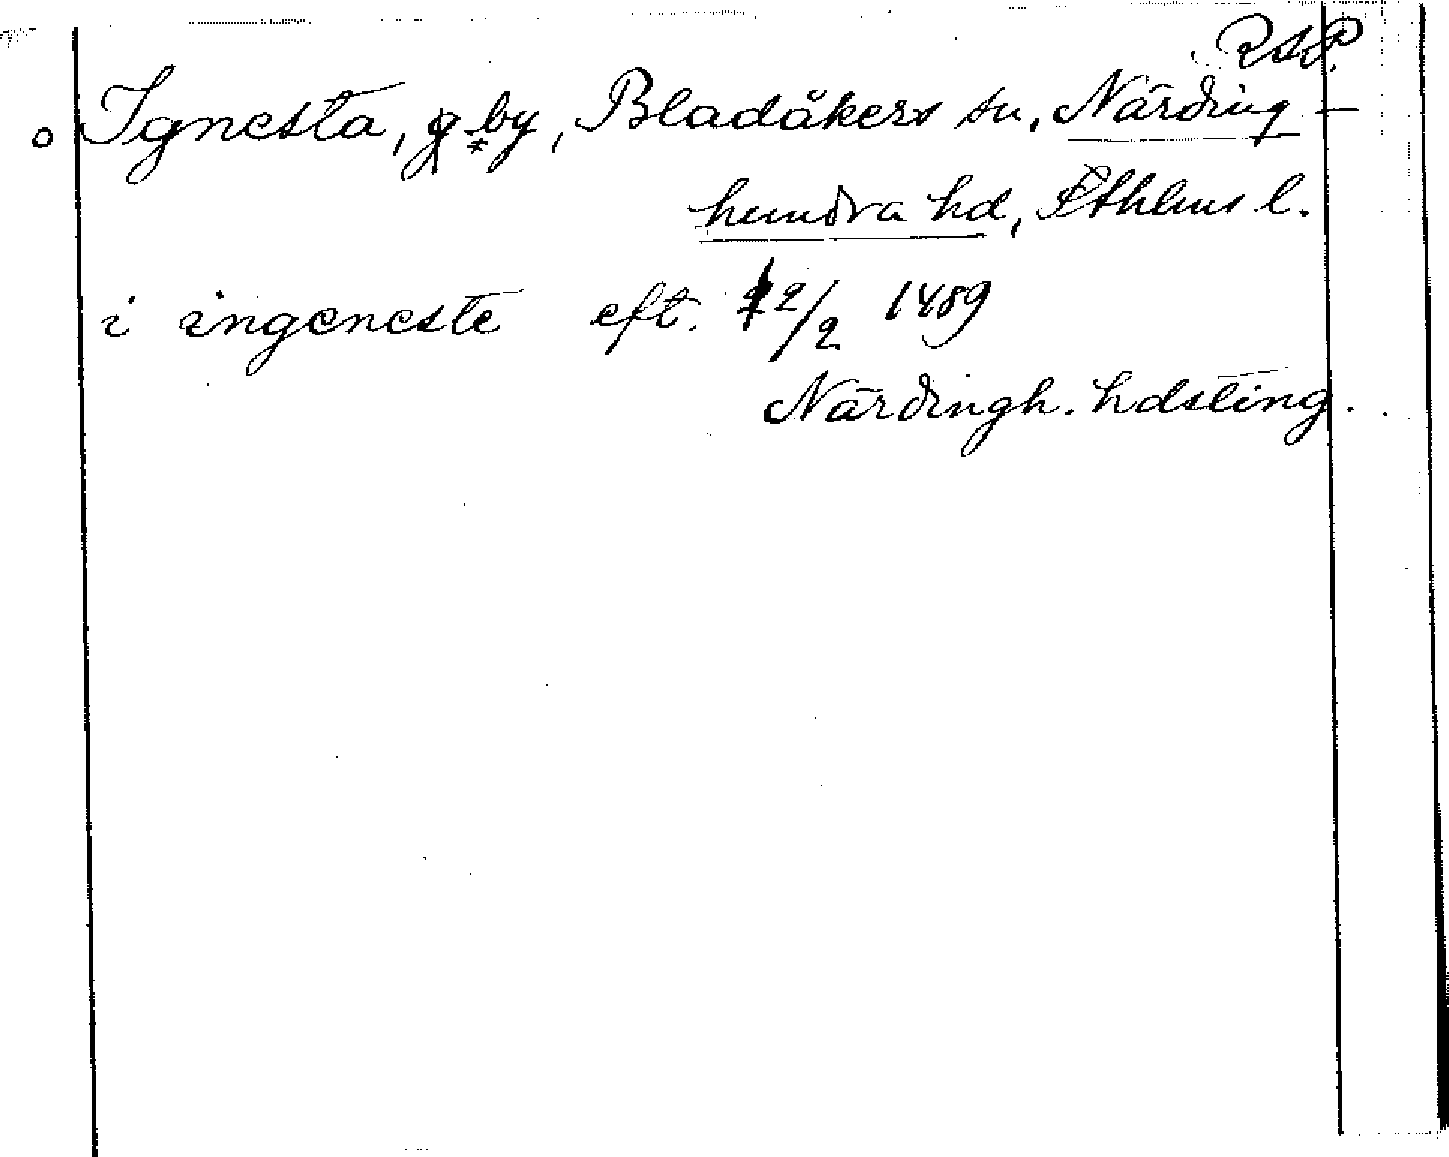 RAP.
o Ignesta, g by, Bladåkers sn, Närding-
hundra hd, Sthlms l.
i ingeneste eft. 12/2 1489
Närdingh. hdsting.